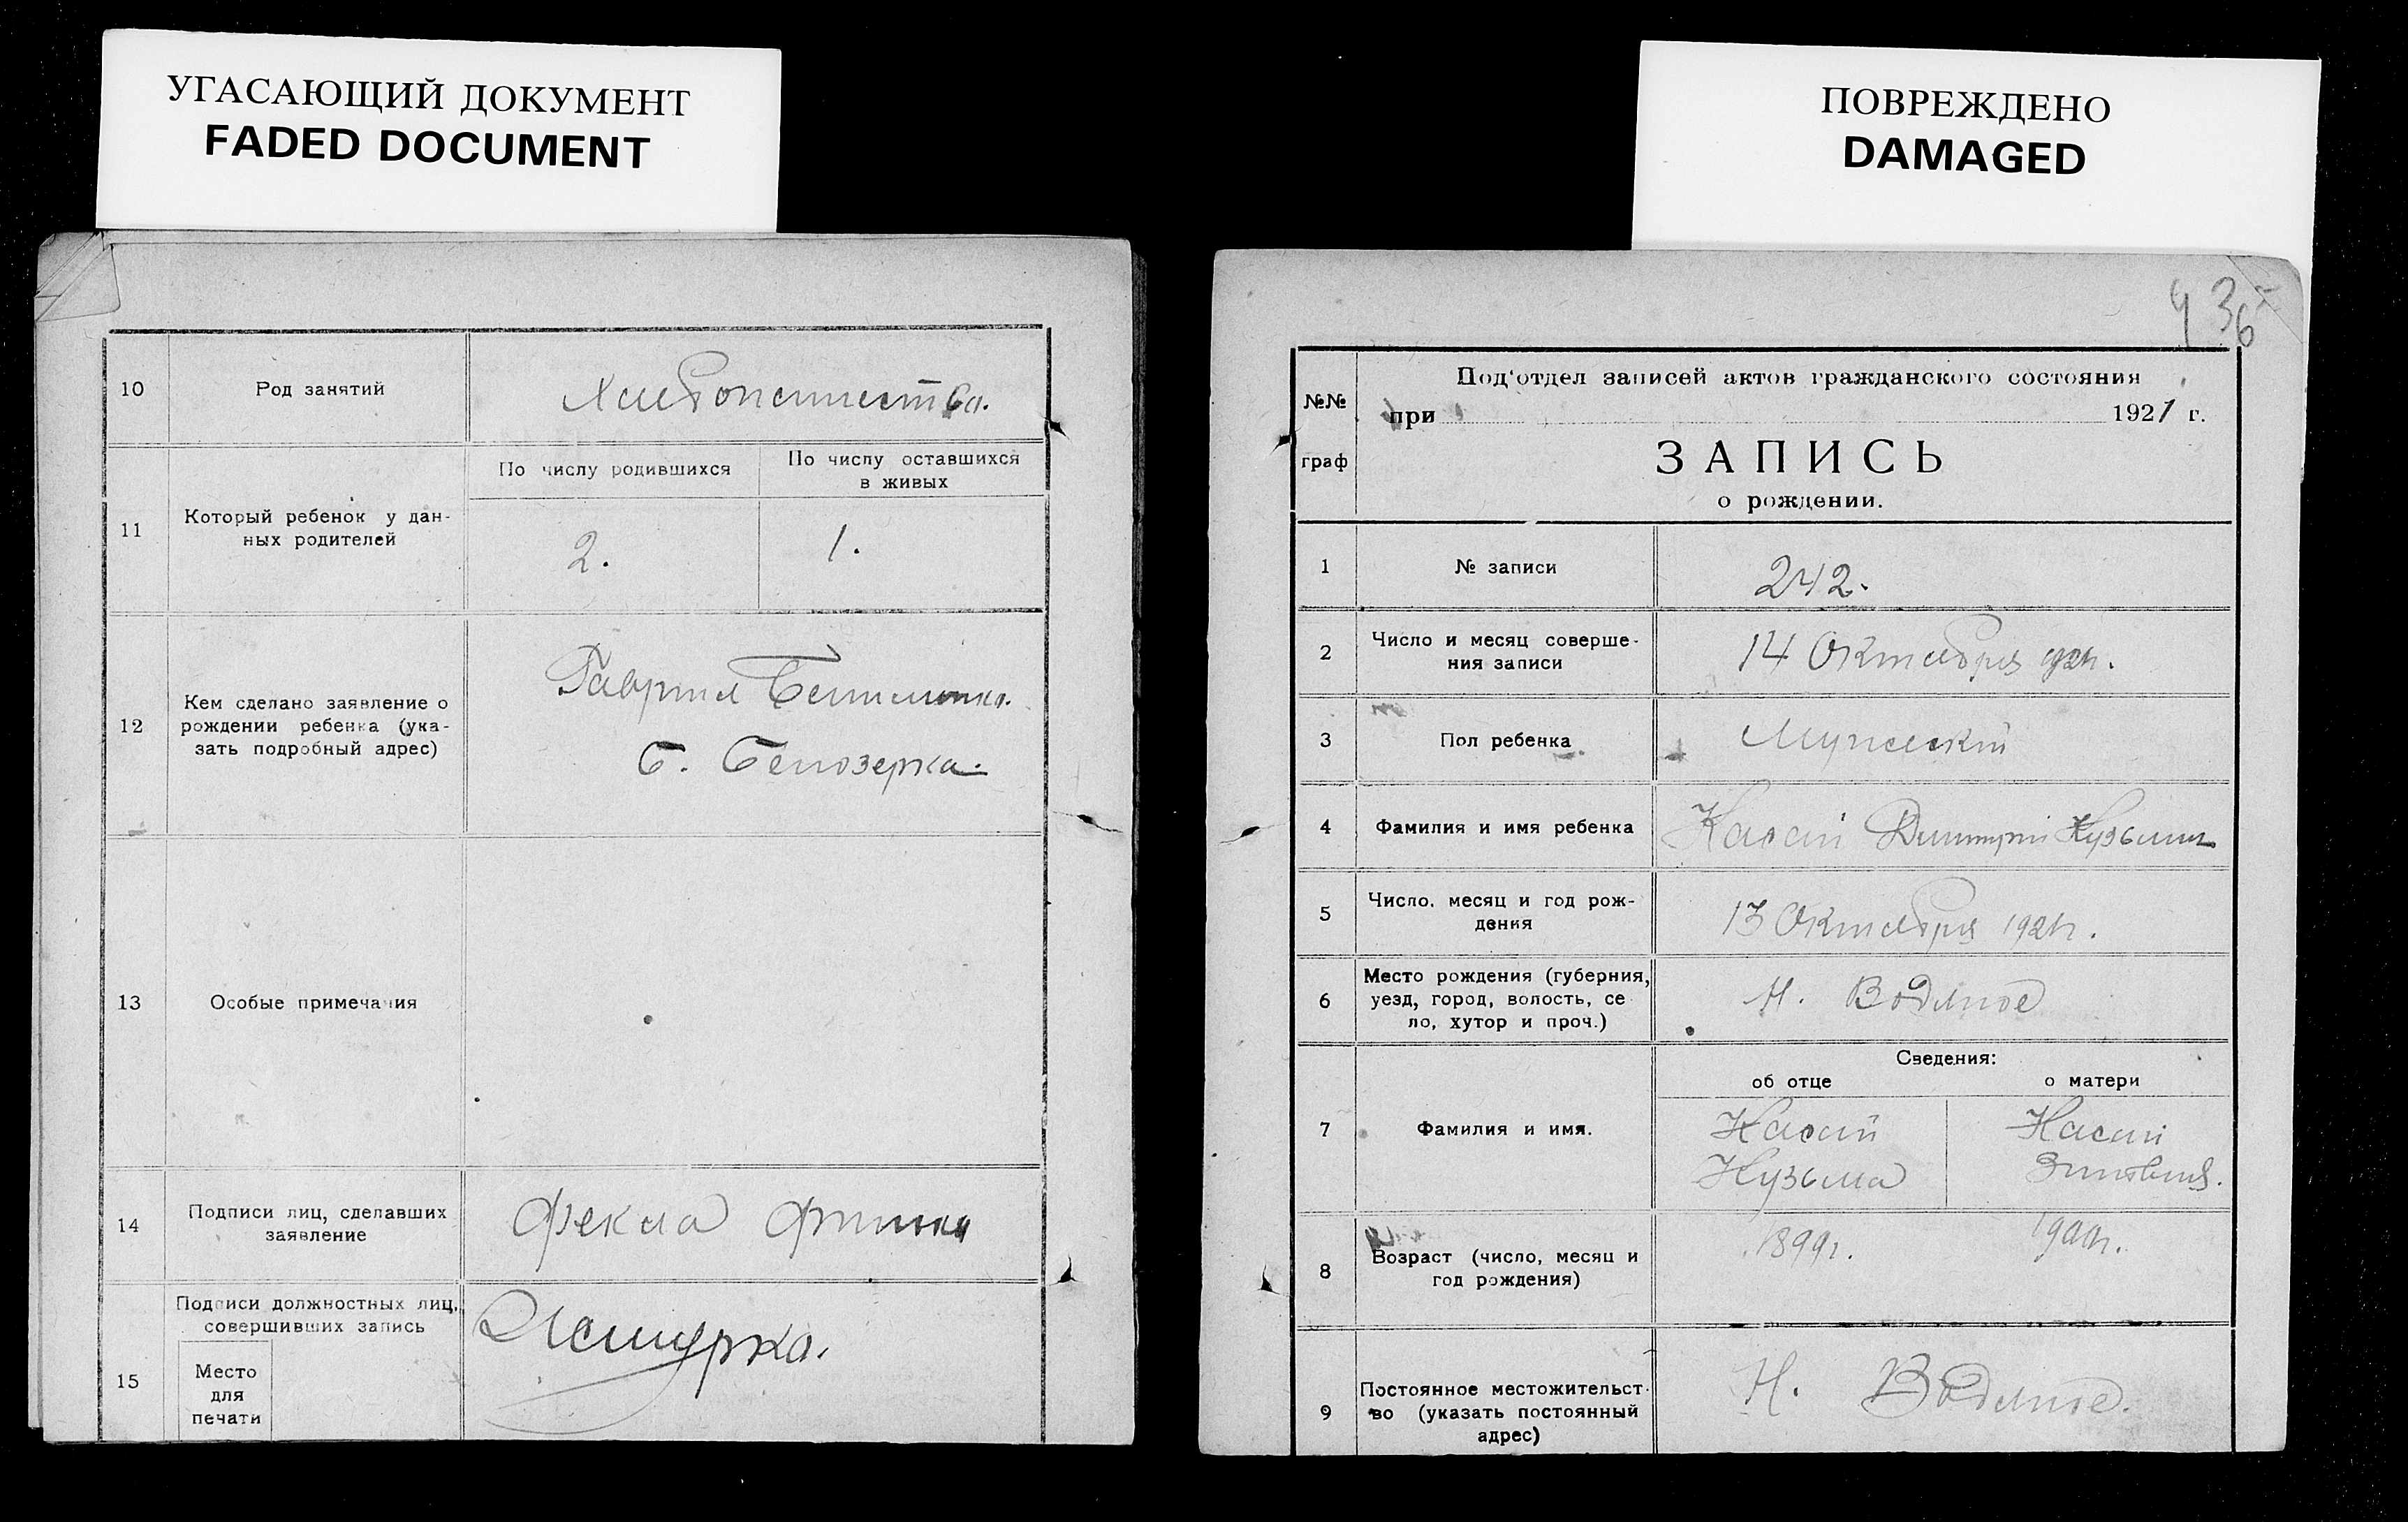 УГАСАЮЩИЙ ДОКУМЕНТ
FADED DOCUMENT
10
Род занятий
Хлебопашество.
11
Который ребенок у дан-
ных родителей
По числу родившихся
По числу оставшихся
в живых
2.
1.
12
Кем сделано заявление о
рождении ребенка (ука-
зать подробный адрес)
Гавриил
Б. Белозерка.
13
Особые примечания
14
Подписи лиц, сделавших
заявление
Фекла
15
Подписи должностных лиц,
совершивших запись
Место
для
печати
ПОВРЕЖДЕНО
DAMAGED
936
№№
граф
Под'отдел записей актов гражданского состояния
при 1921 г.
ЗАПИСЬ
о рождении.
1
№ записи
242.
2
Число и месяц соверше-
ния записи
14 Октября 921г.
3
Пол ребенка
Мужеский
4
Фамилия и имя ребенка
Касай Димитрий Кузьмич
5
Число, месяц и год рож-
дения
13 Октября 1921г.
6
Место рождения (губерния,
уезд, город, волость, се
ло, хутор и проч.)
Н. Водяное
Сведения:
об отце
о матери
7
Фамилия и имя.
Касай
Кузьма
Касай
Зиновия.
8
Возраст (число, месяц и
год рождения)
1899г.
1900г.
9
Постоянное местожительст-
во (указать постоянный
адрес)
Н. Водяное.